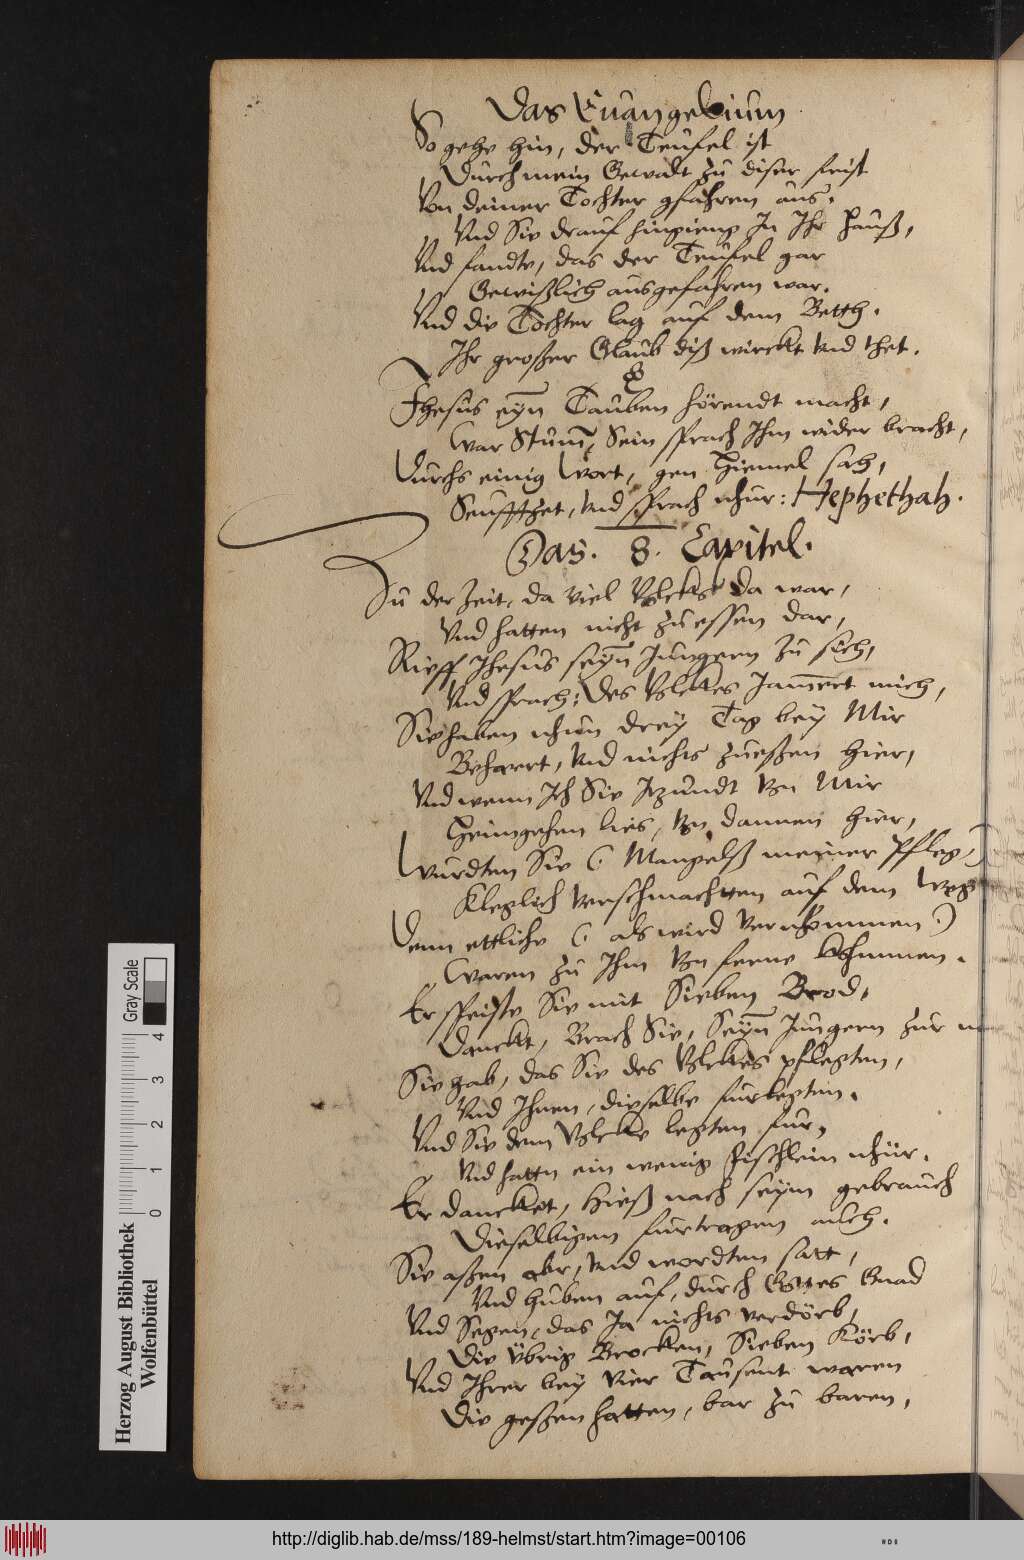 Das Euangelium
So gehe hin, der Teufel ist
Durch mein Gewalt zu diser frist
Von deiner Tochter gfahren aus.
Vnd Sie drauf hingieng In Ihr Hauß,
Vnd fandte, das der Teufel gar
Gewißlich ausgefahren war.
Vnd die Tochter lag auf dem Betth.
Ihr großer Glaub diß wirckt vnd thet.
Jhesus eyn Tauben hörendt macht,
War Stum, Sein sprach Ihm wider bracht,
Durchs einig Wort, gen Himel sah,
Seufftzet, vnd sprach nhur: Hephethah.
Das. 8. Capitel.
Zu der Zeit, da viel Volcks da war,
Vnd hatten nicht zu essen dar,
Rieff Jhesus seyn Jungern zu sich,
Vnd sprach: Des Volckes Jamert mich,
Sie haben nhun drey Tag bey Mir
Beharrt, vnd nichts zueßen hier,
Vnd wenn Ich Sie Itzundt von Mir
Heimgehen lies, von dannen hier,
Wurdten Sie (. Mangelß meiner Pfleg.)
Kleglich verschmachtten auf dem Weg
Denn ettliche (. als wird vernhommen .)
Waren zu Ihm von ferne khommen.
Er speiste Sie mit Sieben Brod,
Danckt, Brach Sie, Seyn Jungern zur
Sie gab, das Sie des Volckes pflegten,
Vnd Ihnen, dieselbe furlegten.
Vnd Sie dem Volcke legten fur,
Vnd hattn ein wenig Fischlein nhur.
Er dancket, hieß nach seym gebrauch
Dieselbigen furtragen auch.
Sie aßen abr, vnd wordten satt,
Vnd huben auf, durch Gottes Gnad
Vnd Segen, das Ja nichts verdörb,
Die Vbrig Brocken, Sieben Körb,
Vnd Ihrer bey Vier Tausent waren
Die geßen hatten, bar zu baren,
Herzog August Bibliothek
Wolfenbüttel
0 1 2 3 4
Gray Scale
http://diglib.hab.de/mss/189-helmst/start.htm?image=00106